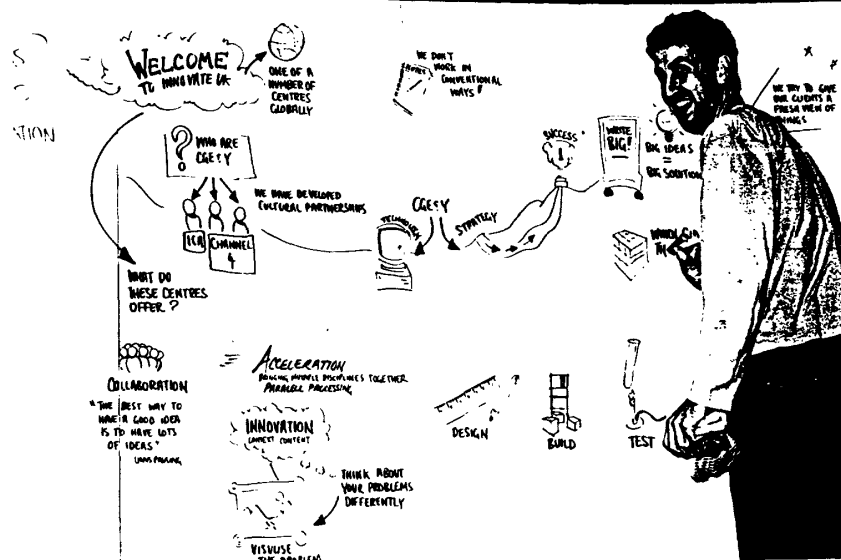 WELCOME
TO INNOVATE UK
ONE OF A
NUMBER OF
CENTRES
GLOBALLY
WE DON'T
WORK IN
CONVENTIONAL
WAYS!
WE TRY TO GIVE
OUR CLIENTS A
FRESH VIEW OF
THINGS
ATION
?
WHO ARE
CGE&Y
WE HAVE DEVELOPED
CULTURAL PARTNERSHIPS
ICA
CHANNEL
4
TECHNOLOGY
CGE&Y
STRATEGY
SUCCESS
!
WRITE
BIG!
BIG IDEAS
=
BIG SOLUTION
WHAT DO
THESE CENTRES
OFFER?
COLLABORATION
"THE BEST WAY TO
HAVE A GOOD IDEA
IS TO HAVE LOTS
OF IDEAS"
LINUS PAULING
ACCELERATION
BRINGING MULTIPLE DISCIPLINES TOGETHER
PARALELL PROCESSING
INNOVATION
CONTEXT CONTENT
THINK ABOUT
YOUR PROBLEMS
DIFFERENTLY
VISULISE
THE PROBLEM
DESIGN
BUILD
TEST